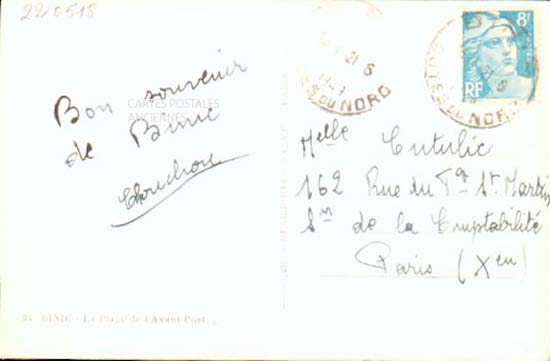 220518
Bon souvenir
de Binic
Chouchou
CARTES POSTALES
ANCIENNES
21 - 6
1949
DU NORD
8F
RF
DU NORD
Melle Cutulic
162 Rue du Fg St. Martin
Sm de la Comptabilité
Paris (Xeu)
BINIC - La Plage de l'Avant-Port